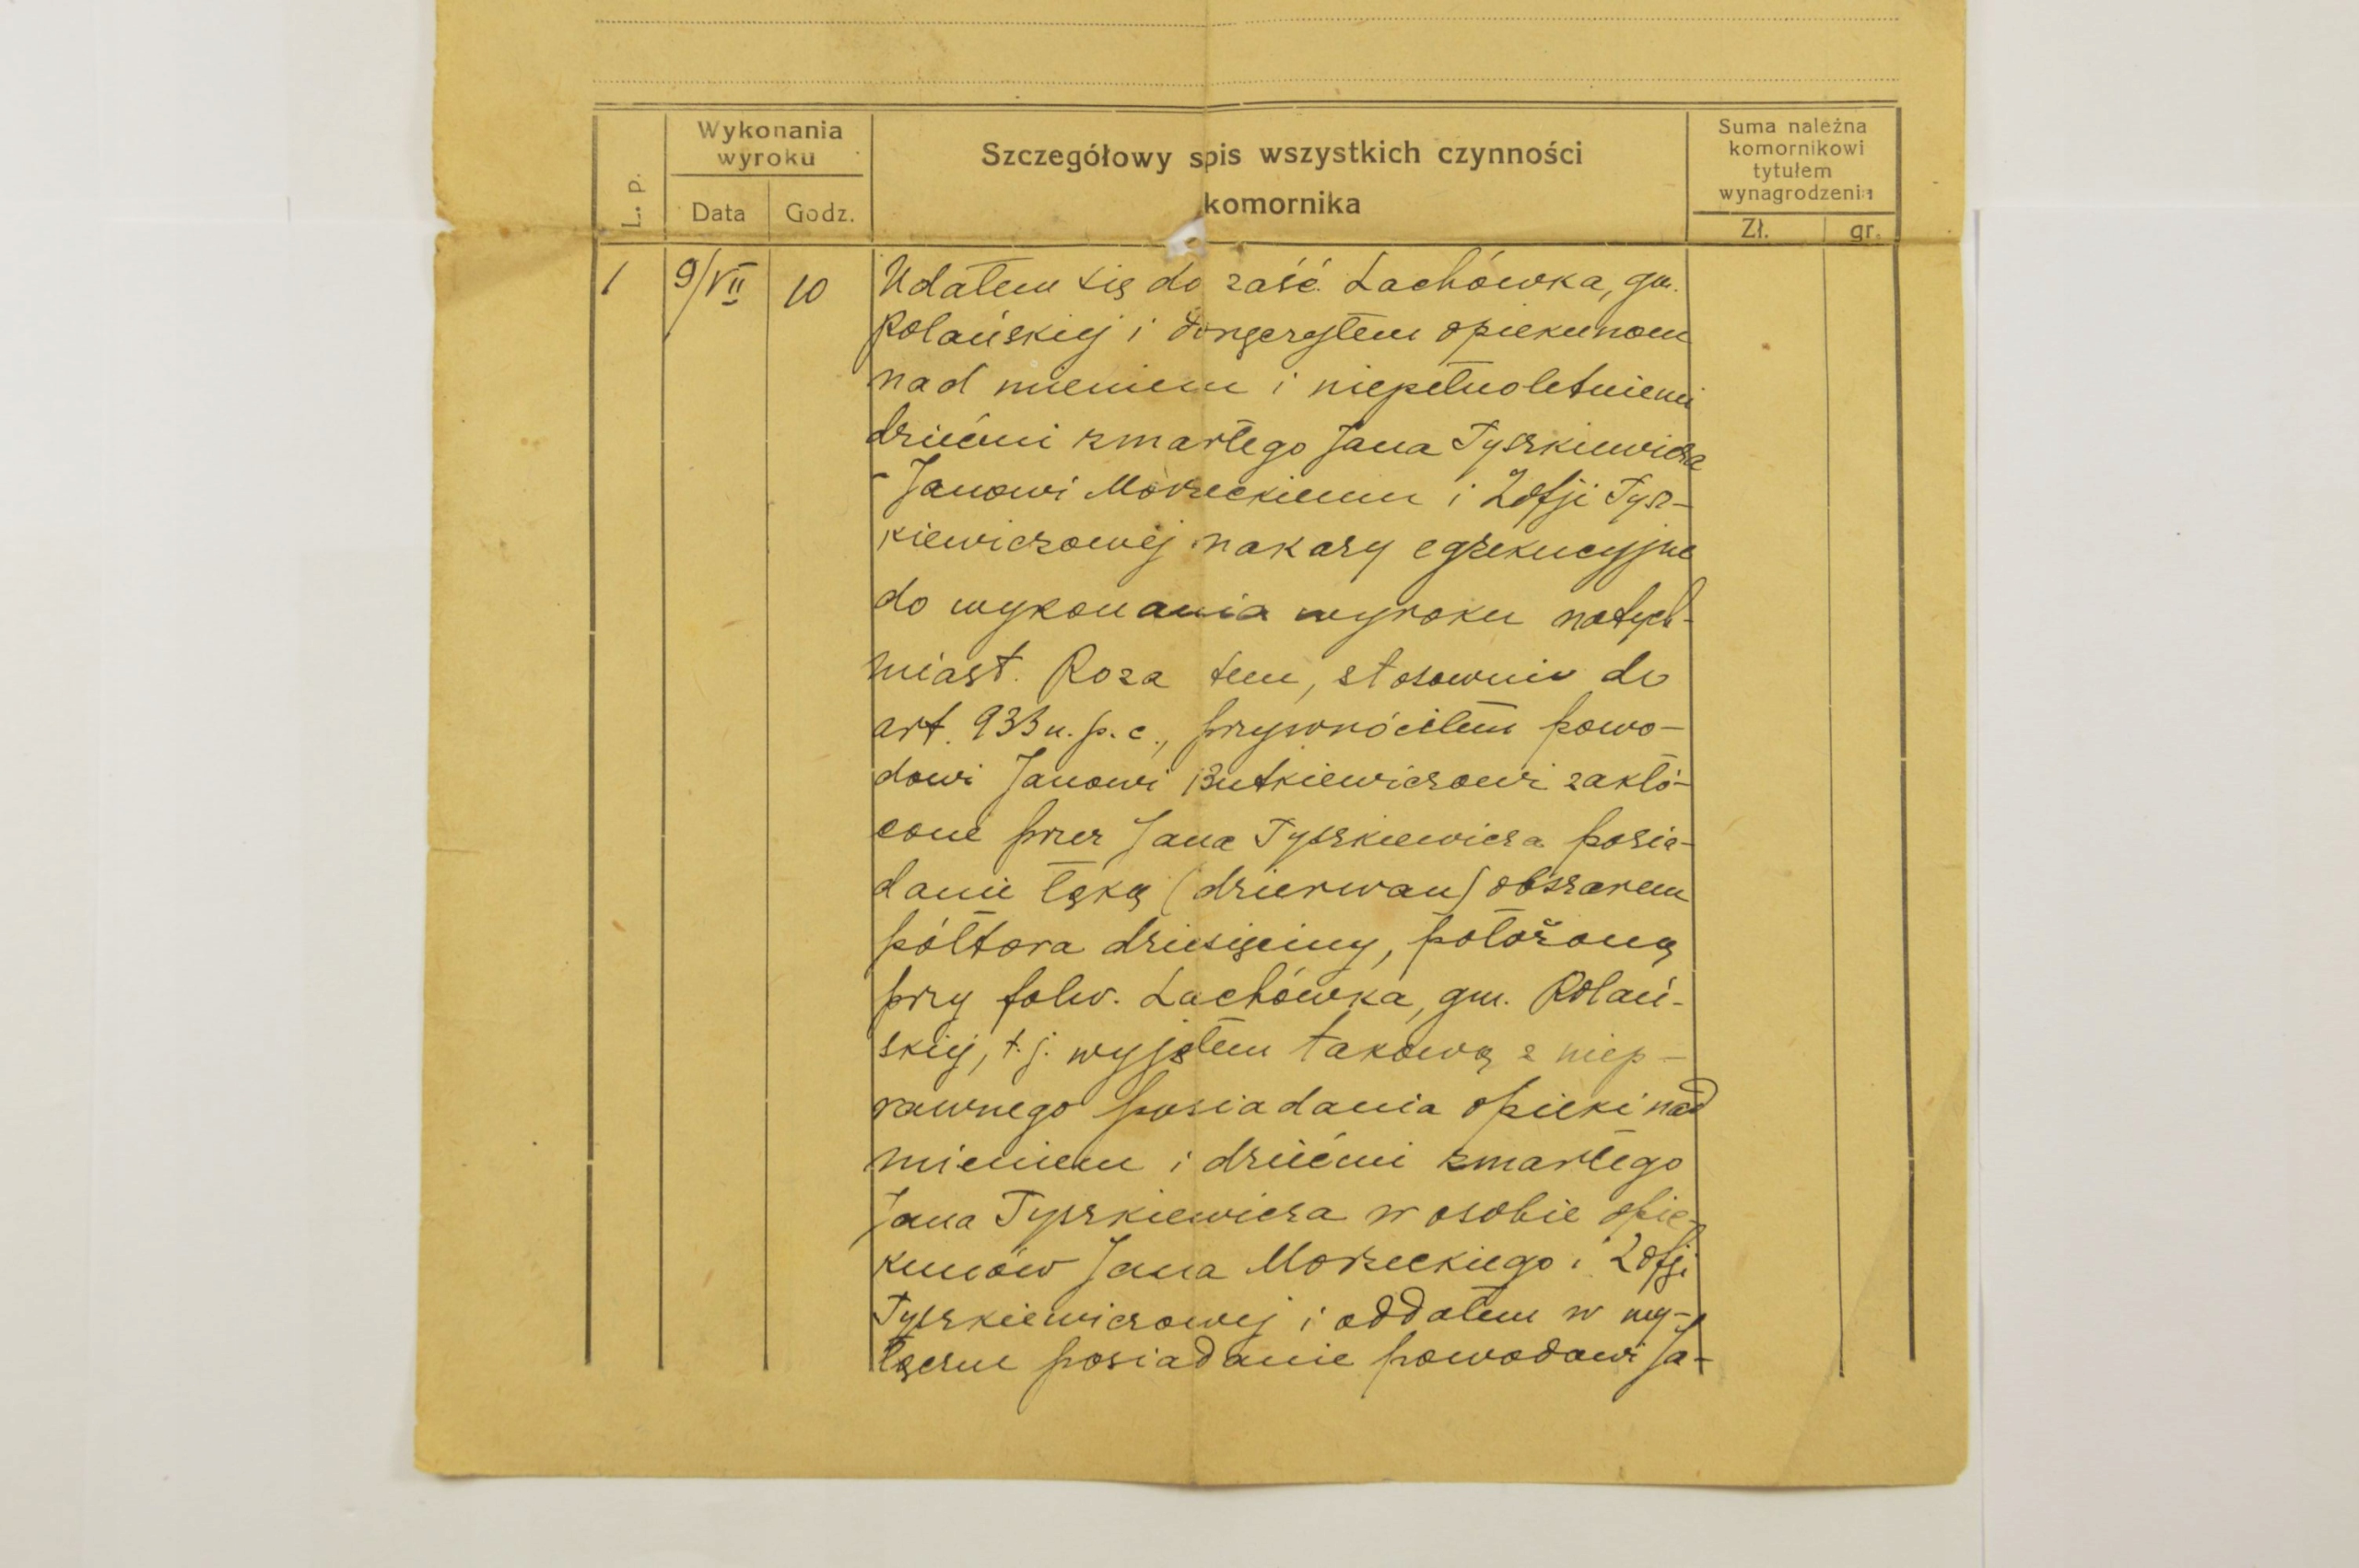 L. p.
Wykonania
wyroku
Data
Godz.
Szczegółowy spis wszystkich czynności
komornika
Suma należna
komornikowi
tytułem
wynagrodzenia
Zł.
gr.
1 9/VII 10 Udałem się do zaść. Lachówka, gm.
Polańskiej i doręczyłem opiekunom
nad mieniem i niepełnoletniemi
dziećmi zmarłego Jana Tyszkiewicza
- Janowi Morzeckiemu i Zofji Tysz-
kiewiczowej nakazy egzekucyjne
do wykonania wyroku natych-
miast. Poza tem, stosownie do
art. 933 u. p. c., przywróciłem powo-
dowi Janowi Butkiewiczowi zakłó-
cone przez Jana Tyszkiewicza posia-
danie łąką (dzierwan) obszarem
półtora dziesięciny, położoną
przy folw. Lachówka, gm. Polań-
skiej, t. j. wyjąłem takową z niep-
rawnego posiadania opieki nad
mieniem i dziećmi zmarłego
Jana Tyszkiewicza w osobie opie-
kunów Jana Morzeckiego i Zofji
Tyszkiewiczowej i oddałem w wy-
łączne posiadanie powodowi Ja-